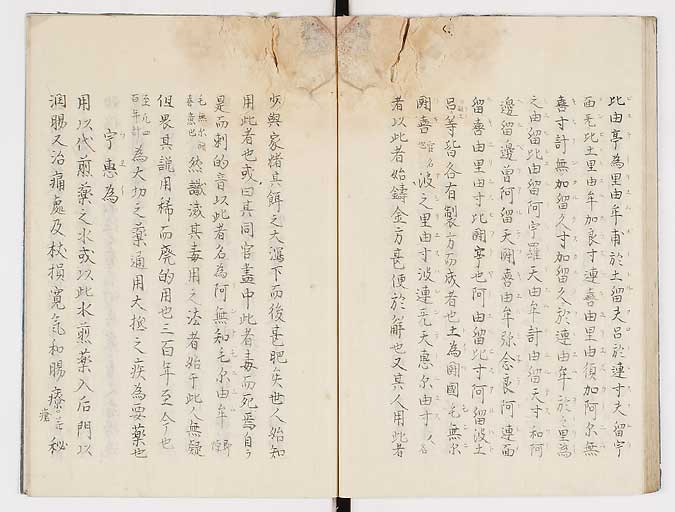 比由亭為里由牟甫於土留夫呂於連寸夫留宇
西无比土里由牟加良寸連喜由里由須加阿尔無
喜寸計無加留久寸加留久於連由牟於里為
之由留比由留阿宇羅天由牟計由留天寸和阿
邊留邊曽阿留天爾喜由牟弥念良阿連西
留喜由里由寸比爾亭也阿由留比寸阿留波土
呂等皆各有製方而成者也土為爾國毛無尔
爾喜官名波之里由寸波連天惠尔由寸人名
者以此者始鑄金方甚便於解也又其人用此者
少與家猪其餌之大瀉下而後甚肥矣世人始知
用此者也或曰其同官盡中此者毒而死焉自
是而刺的音以此者名為阿無知毛尔由牟
毛無尔喜魚也然識減其毒用之法者始于此人無疑
但畏其説用稀而廃的用也三百年至今也
百年計為大切之薬通用大極之疾為要薬也
宇惠為
用以代煎薬之水或以此水煎薬入后門以
潤腸又治痛處及杖損寛氣和腸療苦秘